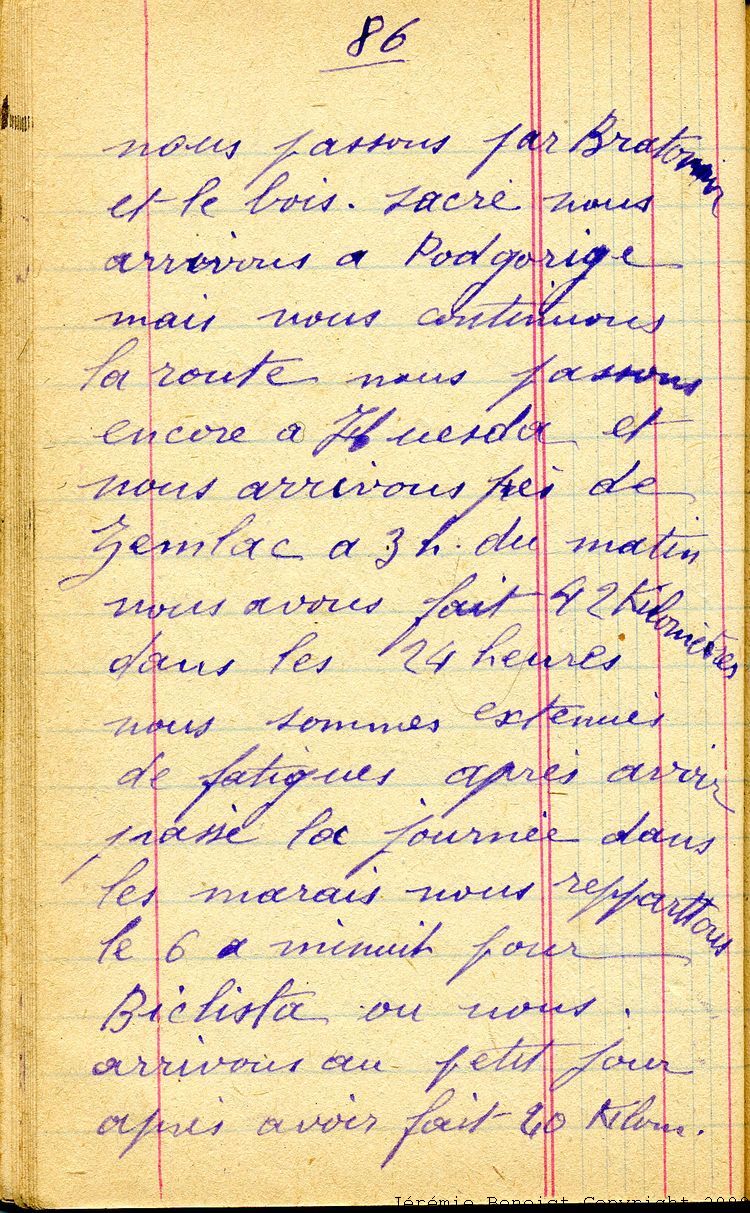 86
nous passons par Bratomir
et le bois. sacré nous
arrivons a Podgorige
mais nous continuons
la route nous passons
encore a Huesda et
nous arrivons près de
Zemlac a 3 h. du matin
nous avons fait 42 Kilomètres
dans les 24 heures
nous sommes extenués
de fatigues après avoir
passé la journée dans
les marais nous reppartons
le 6 a minuit pour
Biclista ou nous.
arrivons au petit jour
après avoir fait 20 Kilom.
Jérémie Benoist Copyright